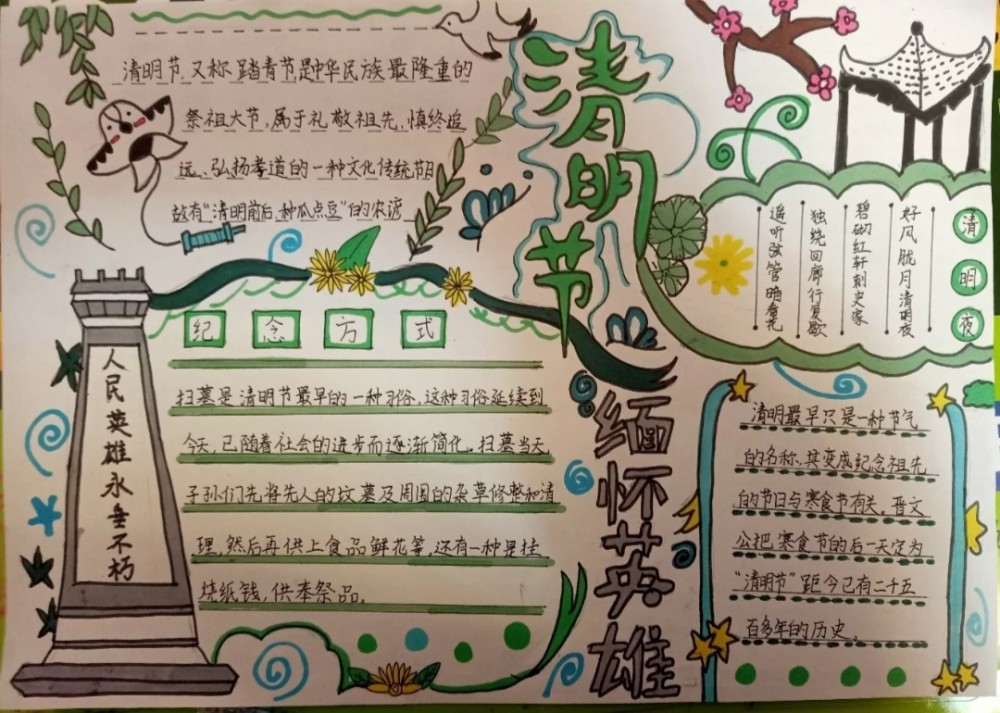 清明节,又称踏青节是中华民族最隆重的
祭祖大节,属于礼敬祖先、慎终追
远、弘扬孝道的一种文化传统节日
故有“清明前后,种瓜点豆”的农谚
清明节
缅怀英雄
清明夜
好风胧月清明夜
碧砌红轩刺史家
独绕回廊行复歇
遥听弦管暗看花
人民英雄永垂不朽
纪念方式
扫墓是清明节最早的一种习俗,这种习俗延续到
今天,已随着社会的进步而逐渐简化。扫墓当天,
子孙们先将先人的坟墓及周围的杂草修整和清
理,然后再供上食品鲜花等,还有一种是挂
烧纸钱,供奉祭品。
清明最早只是一种节气
的名称、其变成纪念祖先
的节日与寒食节有关。晋文
公把寒食节的后一天定为
“清明节”距今已有二千五
百多年的历史。